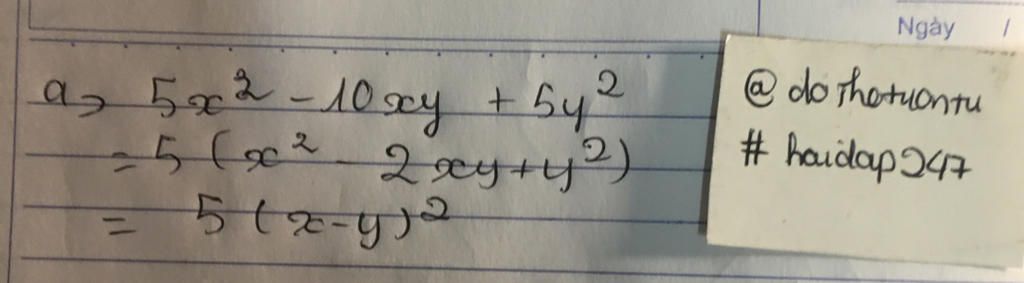 Ngày /
a> 5x² - 10xy + 5y²
= 5 (x² - 2xy + y²)
= 5 (x - y)²
@ dothotuontu
# haidap247